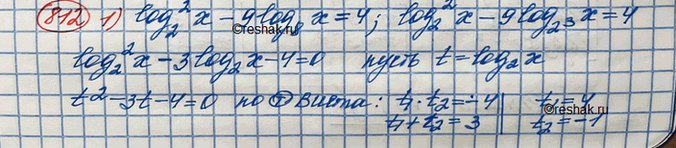 812 1) log₂²x - 9log₈x = 4; log₂²x - 9log₂³x = 4
log₂²x - 3log₂x - 4 = 0 пусть t = log₂x
t² - 3t - 4 = 0 по т Виета: t₁·t₂ = -4 | t₁ = 4
t₁ + t₂ = 3 | t₂ = -1
©reshak.ru
©reshak.ru